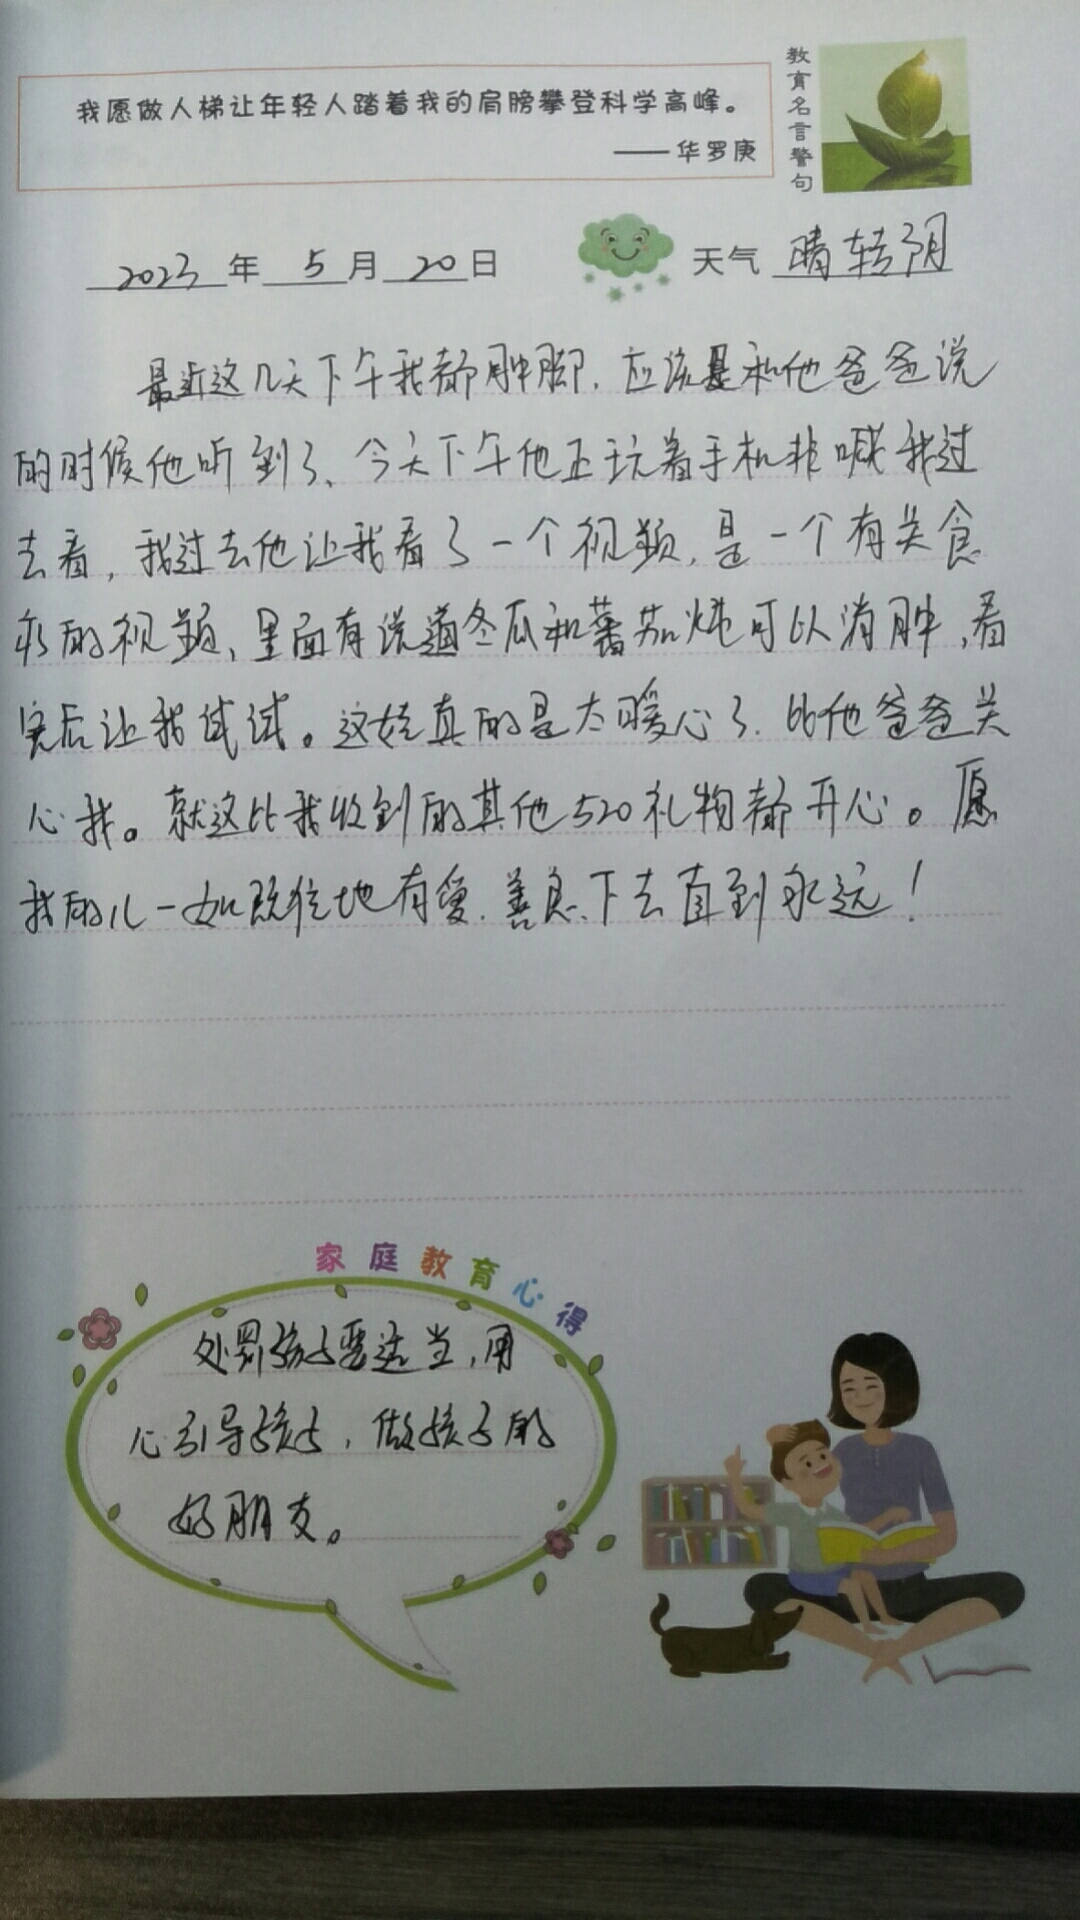 教育名言警句
我愿做人梯让年轻人踏着我的肩膀攀登科学高峰。
——华罗庚
2023年 5月 20日 天气 晴转阴
最近这几天下午我都肿脚，应该是和他爸爸说
的时候他听到了、今天下午他正玩着手机非喊我过
去看，我过去他让我看了一个视频，是一个有关食
的视频，里面有说道冬瓜和蕃茄炖可以消肿，看
完后让我试试。这娃真的是太暖心了，比他爸爸关
心我。就这比我收到的其他520礼物都开心。愿
我的儿一如既往地有爱、善良、下去直到永远！
家庭教育心得
处罚孩子要适当，用
心引导孩子，做孩子的
好朋友。